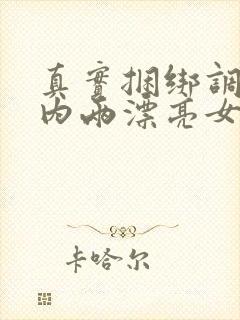 真實捆绑調
内兩漂亮女
卡哈尔